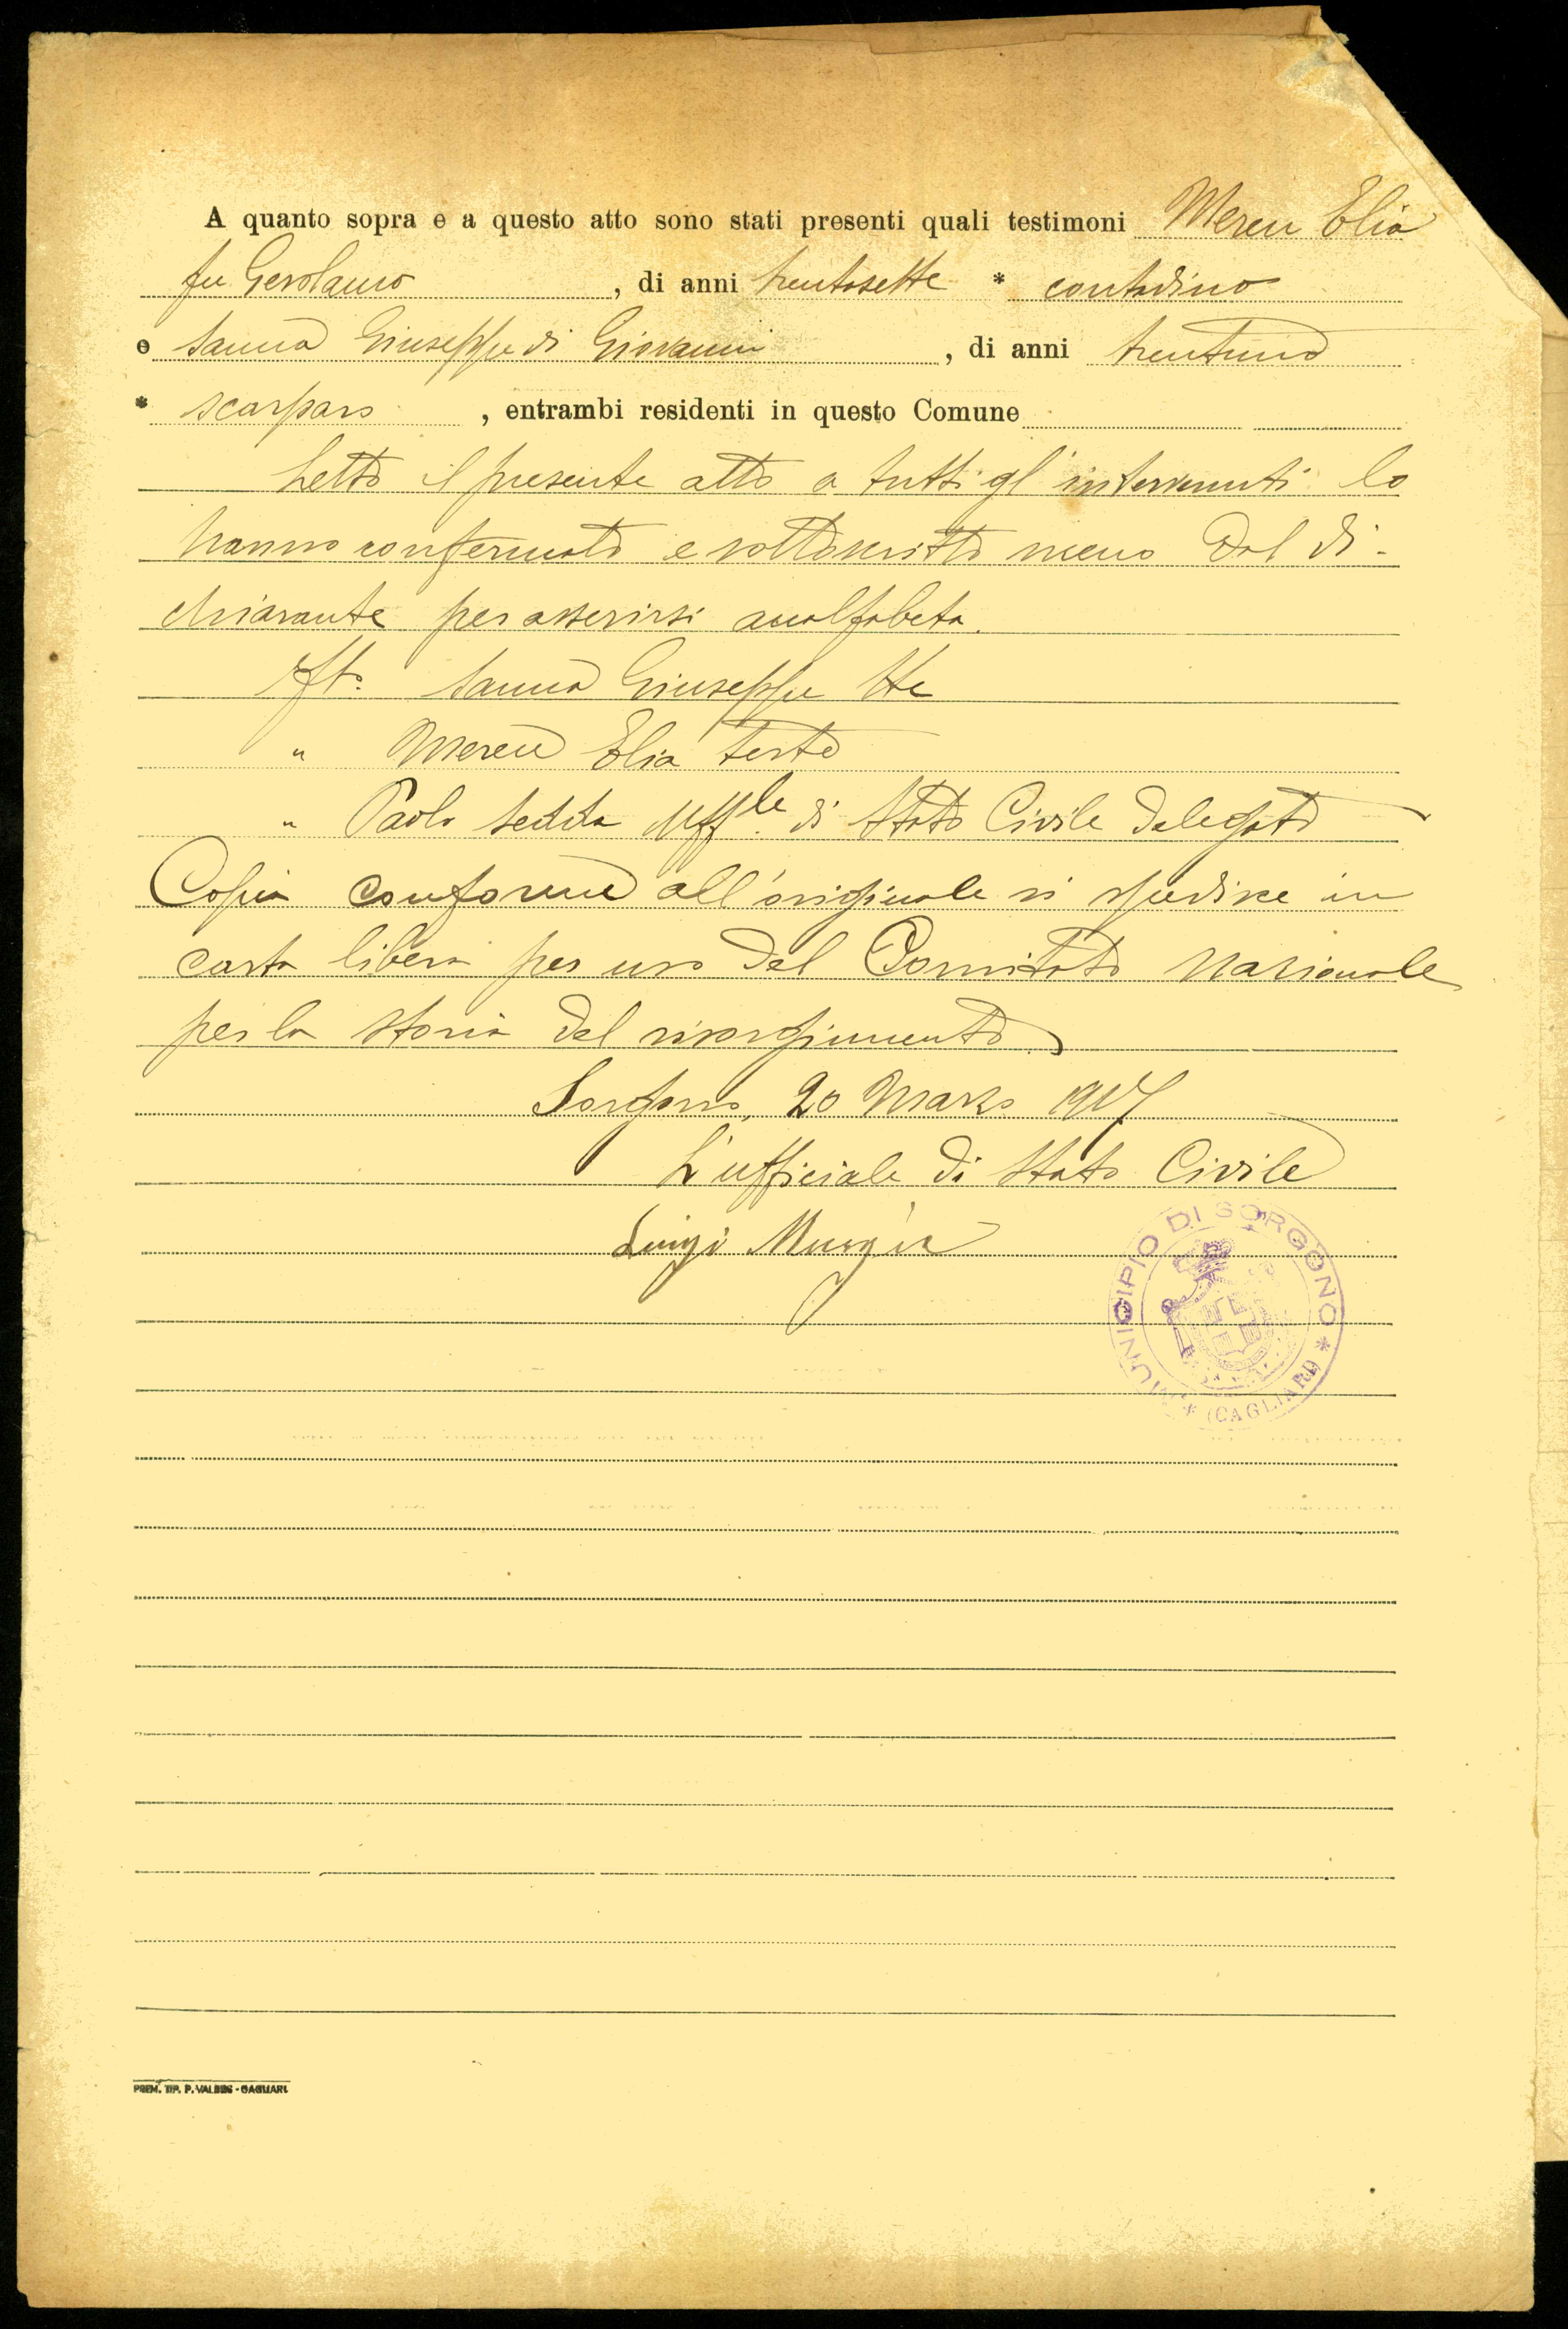 A quanto sopra e a questo atto sono stati presenti quali testimoni Mereu Elia
fu Gerolamo, di anni trentasette * contadino
e Sanna Giuseppe di Giovanni, di anni trentuno
* scarparo, entrambi residenti in questo Comune
Letto il presente atto a tutti gl'intervenuti lo
hanno confermato e sottoscritto meno dal di-
chiarante per asserirsi analfabeta.
Fto. Sanna Giuseppe tte
" Mereu Elia teste
" Paolo Sedda Uffle. di Stato Civile delegato
Copia conforme all'originale si spedisce in
carta libera per uso del Comitato nazionale
per la storia del risorgimento
Sorgono, 20 Marzo 1917
L'ufficiale di Stato Civile
Luigi Murgia
MUNICIPIO DI SORGONO * (CAGLIARI) *
PREM. TIP. P. VALDES - CAGLIARI